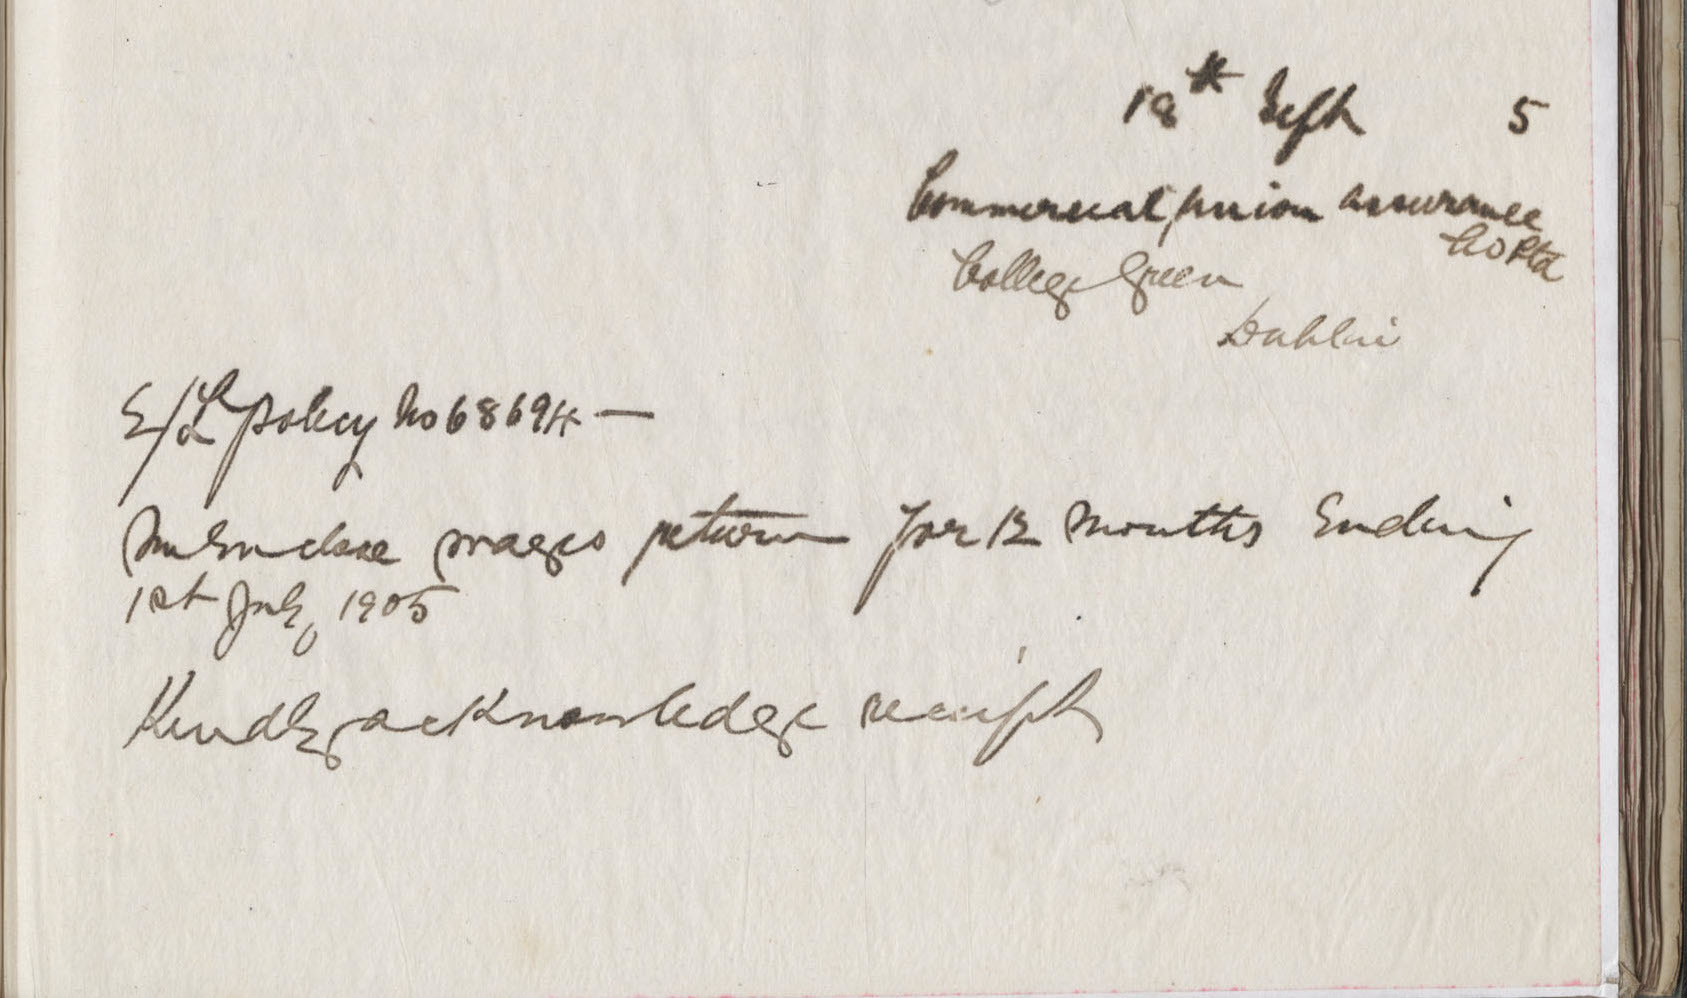 18th Sept 5
Commercial Union Assurance
Co Ltd
College Green
Dublin
E/L Policy No 68694 —
We Enclose wages return for 12 Months Ending
1st July, 1905
Kindly acknowledge receipt